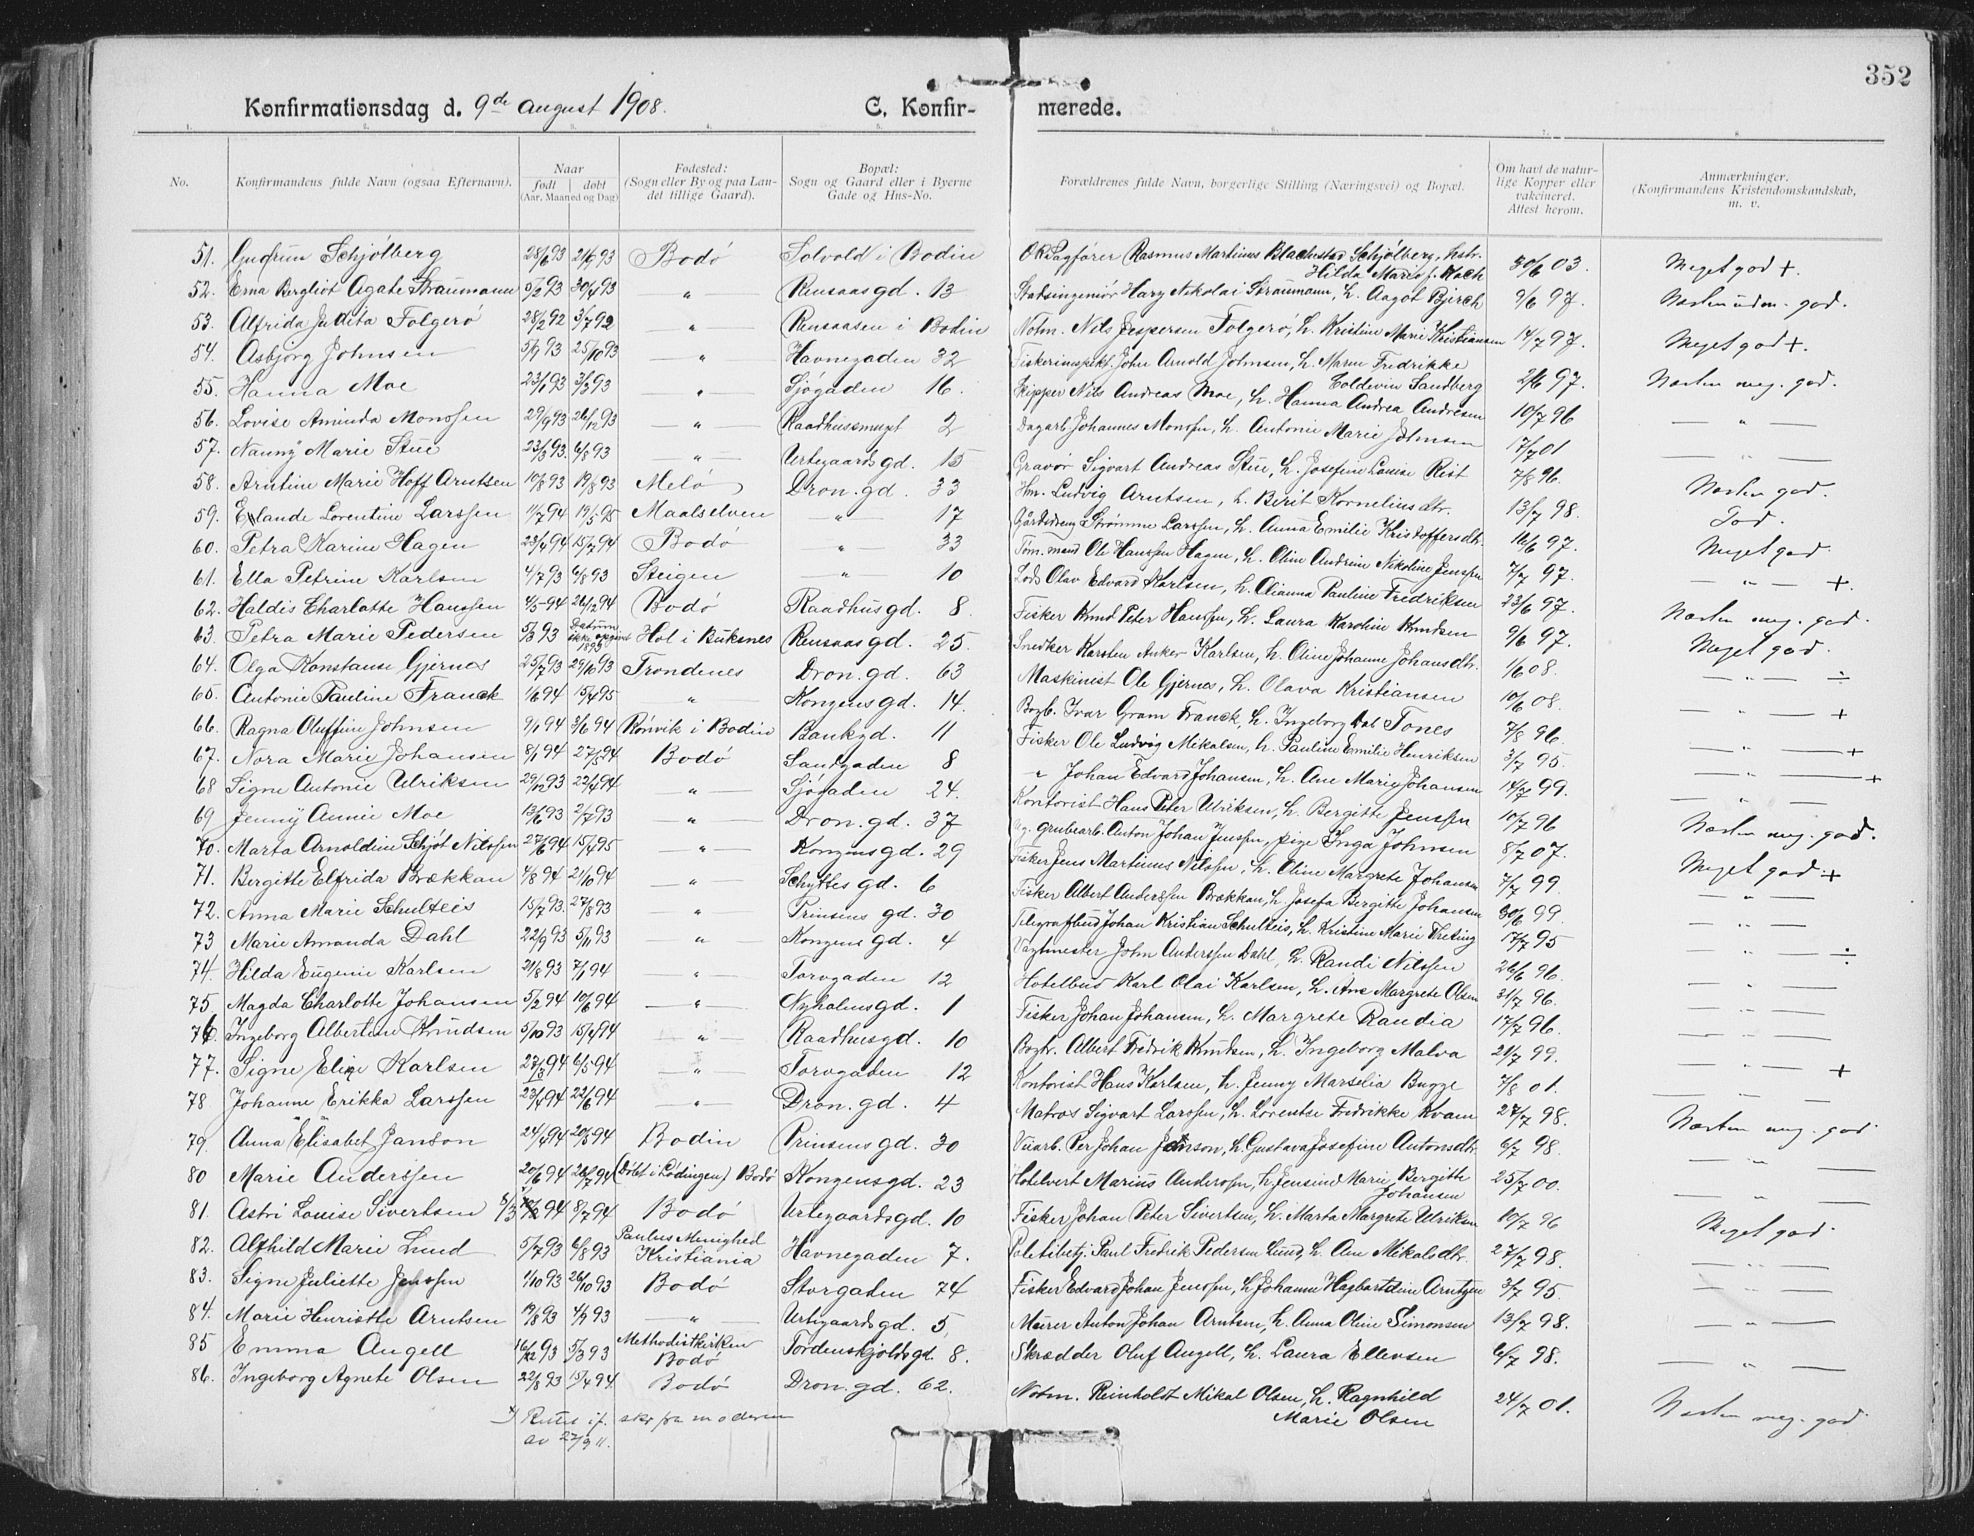 352
Konfirmationsdag d. 9de august 1908. C. Konfir-merede.
1. 2. 3. 4. 5. 6. 7. 8.
No. Konfirmandens fulde Navn (ogsaa Efternavn). Naar født døbt (Aar, Maaned og Dag) Fødested: (Sogn eller By og paa Landet tillige Gaard). Bopæl: Sogn og Gaard eller i Byerne Gade og Hus-No. Forældrenes fulde Navn, borgerlige Stilling (Næringsvei) og Bopæl. Om havt de naturlige Kopper eller vakcineret. Attest herom. Anmærkninger. (Konfirmandens Kristendomskundskab, m. v.
51. Gudrun Schjölberg 28/6 93 Bodö Solvold i Bodin Rasmus Martinus Schjölberg, hstr. Hilda Marie f. Koch 30/6 03. Meget god +.
52. Erna Bergliot Agate Straumann 5/2 93 30/4 93 " Rensaasgd. 13 Stadsingeniör Harz Nikolai Straumann, h. Aagot Bjerch 9/6 97. Næsten udm. god.
53. Alfrida Judita Tolgerö 28/2 92 3/7 92 " Rensaasen i Bodin Notm. Nils Jespersen Tolgerö, h. Kristine Marie Kristiansen 14/7 97. Meget god +.
54. Asbjörg Johnsen 5/9 93 25/10 93 " Havnegaden 32 Fiskeriinspekt. John Arnold Johnsen, h. Maren Fredrikke Coldevin Sandberg 2/6 97. Næsten meg. god.
55. Hanna Moe 23/1 93 3/3 93 " Sjögaden 16. Skipper Nils Andreas Moe, h. Hanna Andrea Andresen 10/7 96 "
56. Lovise Aminda Monssen 29/9 93 26/12 93 " Raadhussmuget 2 Dagarb. Johannes Monssen, h. Antonie Marie Johnsen 17/7 01 "
57. Nanny Marie Stue 23/3 93. 6/8 93 " Urtegaardsgd. 15 Gravör Sigvart Andreas Stue, h. Josefine Louise Rist 7/8 96. Næsten god.
58. Arntine Marie Hoff Arntsen 10/8 93 19/8 93 Melö Dron. gd. 33 Hm. Ludvig Arntsen, h. Berit Korneliusdtr. 13/7 98. God.
59. Erlande Lorentine Larssen 11/7 94 19/5 95 Maalselven " 17 Gårdsdreng Strömme Larssen, h. Anna Emilie Kristoffersdtr. 16/6 97. Meget god.
60. Petra Karine Hagen 23/4 94 15/7 94 Bodö " 33 Töm.mand Ole Hanssen Hagen, h. Oline Andrine Nikoline Jenssen 7/7 97. " +
61. Ella Petrine Karlsen 4/7 93 6/8 93 Steigen " 10 Lods Olav Edvard Karlsen, h. Elianna Pauline Fredriksen 23/6 97. Næsten meg. god.
62. Haldis Charlotte Hanssen 4/5 94 26/12 94 Bodö Raadhusgd. 8. Fisker Knud Peter Hanssen, h. Laura Karoline Knudsen 9/6 97. Meget god.
63. Petra Marie Pedersen 5/3 93 Datum ikke opgivet 1893 Hol i Buksnes Rensaasgd. 25. Snedker Karsten Anker Karlsen, h. Oline Johanne Johansdtr. 1/6 08. " ÷
64. Olga Konstanse Gjernes 25/7 93 29/10 93 Trondenes Dron. gd. 63 Maskinest Ole Gjernes, h. Olava Kristiansen 10/6 08. " +
65. Antonie Pauline Franck 1/6 94 15/4 95 " Kongensgd. 14. Bogb. Ivar Gram Franck, h. Ingeborg Tones 7/8 96. " +
66. Ragna Oluffine Johnsen 9/1 94 3/6 94 Rönvik i Bodin Bankgd. 11 Fisker Ole Ludvig Mikalsen, h. Pauline Emilie Henriksen 3/7 95. " +
67. Nora Marie Johansen 8/1 94 27/5 94 Bodö Sandgaden 8 " Johan Edvard Johansen, h. Ane Marie Johansen 14/7 99. "
68 Signe Antonie Ulriksen 29/12 93 22/4 94 " Sjögaden 24. Kontorist Hans Peter Ulriksen, h. Bergitte Jenssen 10/7 96 Næsten meg. god.
69 Jenny Annie Moe 13/6 93 2/7 93 " Dron. gd. 37 grubearb. Anton Johan Jenssen, pige Inga Johnsen 8/7 07. Meget god +
70. Marta Arnoldine Schjöt Nilssen 27/6 94 15/4 95 " Kongensgd. 29 Fisker Jens Martinus Nilssen, h. Oline Margrete Johansen 7/7 99. "
71. Bergitte Elfrida Brækkan 4/8 94 21/10 94 " Schyttes gd. 6 Fisker Albert Anderssen Brækkan, h. Josefa Bergitte Johansen 30/6 99. "
72. Anna Marie Schulteis 15/7 93. 27/8 93 " Prinsens gd. 30 Telegrafbud Johan Kristian Schulteis, h. Kristine Marie 17/7 95 " ÷
73 Marie Amanda Dahl 22/9 93 5/11 93 " Kongens gd. 4 Vagtmester John Anderssen Dahl, h. Randi Nilssen 26/6 96. "
74. Hilda Eugenie Karlsen 21/8 93 7/1 94 " Torvgaden 12 Hotelbud Karl Olai Karlsen, h. Ane Margrete Olsen 31/7 96. "
75. Magda Charlotte Johansen 5/2 94 10/6 94 " Nyholmsgd. 1 Fisker Johan Johansen, h. Margrete Randia 17/7 96. "
76. Ingeborg Albertine Knudsen 5/10 93 15/4 94 " Raadhusgd. 10 Bogtr. Albert Fredrik Knudsen, h. Ingeborg Malva 21/7 99. " +
77. Signe Eline Karlsen 23/3 94 6/5 94 " Torvgaden 12 Kontorist Hans Karlsen, h. Jenny Marselia Bugge 7/8 01. "
78 Johanne Erikka Larssen 23/4 94 22/6 94 " Dron. gd. 4 Matros Sigvart Larssen, h. Lorentse Fredrikke Kvam 27/7 98. Næsten meg. god.
79. Anna Elisabet Janson 24/4 94 20/5 94 Bodin Prinsensgd. 30 Per Johan Janson, h. Gustava Josefine Antonsdtr. 6/7 98. "
80 Marie Anderssen 20/6 94 26/7 94 (Döbt i Lödingen) Bodö Kongensgd. 23 Hotelvert Marius Anderssen, h. Jensine Marie Bergitte Johansen 25/7 00. "
81. Astri Louise Sivertsen 8/3 94 8/7 94 Bodö Urtegaardsgd. 10 Fisker Johan Peter Sivertsen, h. Marta Margrete Ulriksen 10/7 96 Meget god.
82. Alfhild Marie Lund 5/7 93 6/8 93 Paulus Menighed Kristiania Havnegaden 7. Politibetj. Paul Fredrik Pedersen Lund, h. Ane Mikalsdtr. 27/7 98. "
83. Signe Juliette Jenssen 1/10 93 26/10 93 Bodö Storgaden 74 Fisker Edvard Johan Jenssen, h. Johanna Hagbartdine Arntzen 3/7 95. "
84. Marie Henriette Arntsen 19/8 93 " Urtegaardsgd. 5. Murer Anton Johan Arntsen, h. Anna Oline Simonsen 13/7 98. "
85 Emma Angell 16/12 93 5/3 93 Methodistkirken Bodö Tordenskjoldsgd. 8. Skrædder Oluf Angell, h. Laura Ellevsen 6/7 98. "
86. Ingeborg Agnete Olsen 22/8 93 15/4 94. Bodö Dron. gd. 62. Notm. Reinholdt Mikal Olsen, h. Ragnhild Marie Olsen 24/7 01. Næsten meg. god.
Rettet if. skr fra moderen
av 27/3 11.